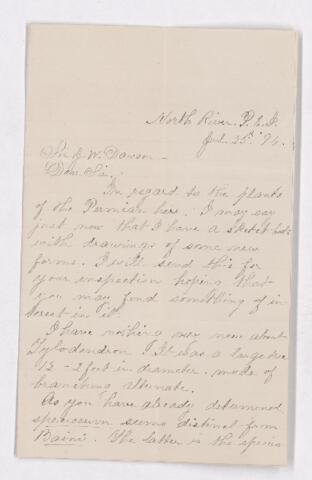 North River, P. E. I.
25th '96.
Sir J. W. Dawson —
Dear Sir,
In regard to the plants
of the Permian here, I may say
just now that I have a sketch book
with drawings of some new
forms. I will send this for
your inspection hoping that
you may find something of in
terest in it.
I have nothing new about
Tylodendron. It was a large tree
1½ - 2 feet in diameter. mode of
branching alternate.
As you have already determined
speciosum seems distinct from
Baini. The latter is the species